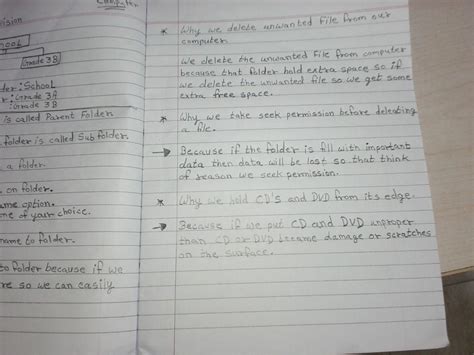 Computer
vision
hool
Grade 3B
der: School
r: Grade 3
: Grade 3B
is called Parent Folder
folder is called Sub folder.
a folder.
on folder.
ame option.
me of your choice.
name to folder.
to folder because if we
re so we can easily
* Why we delete unwanted File from our
computer.
We delete the unwanted File from computer
because that folder hold extra space so if
we delete the unwanted file so we get some
extra free space.
* Why we take seek permission before deleating
a file.
→ Because if the folder is fill with important
data then data will be lost so that think
of reason we seek permission.
* Why we hold CD's and DVD from its edge.
→ Because if we put CD and DVD unproper
than CD or DVD became damage or scratches
on the surface.